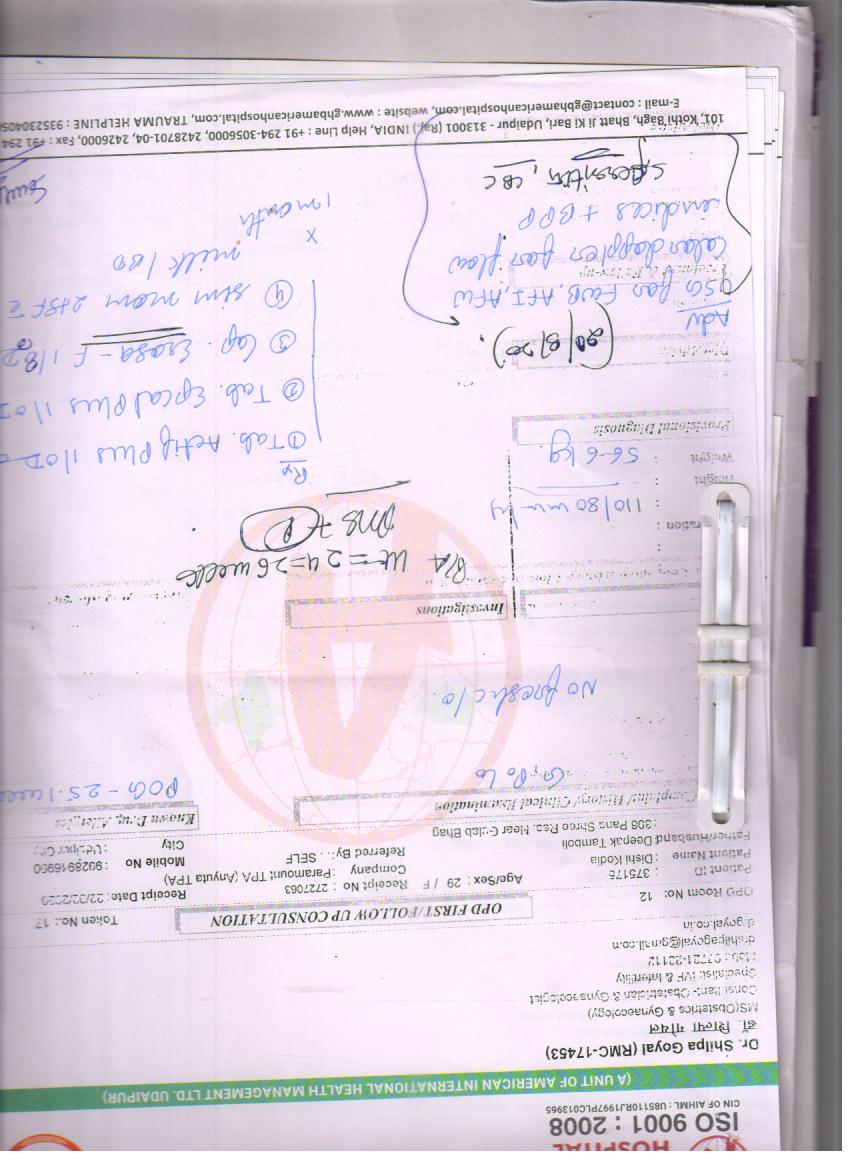 HOSPITAL
ISO 9001 : 2008
CIN OF AIHML : U85110RJ1997PLC013965
(A UNIT OF AMERICAN INTERNATIONAL HEALTH MANAGEMENT LTD. UDAIPUR)
Dr. Shilpa Goyal (RMC-17453)
डॉ. शिल्पा गोयल
MS(Obstetrics & Gynaecology)
Consultant- Obstetrician & Gynaecologist
Specialist IVF & Infertility
drshilpagoyal@gmail.com
drgoyal.co.in
Token No.: 17
OPD FIRST/FOLLOW UP CONSULTATION
OPD Room No: 12
Patient ID : 375175
Age/Sex: 29 / F
Receipt No : 2727063
Receipt Date:
Patient Name : Dishi Kodia
Company : Paramount TPA (Anyuta TPA)
Mobile No :
Father/Husband Deepak Tamboli
Referred By: . . SELF
City : Udaipur City
: 306 Pans Shree Res. Near Gulab Bhag
Complaint/ History/ Clinical Examination
Known Drug Allergies
G1P0L0
POG - 25.1 week
No fresh c/o
Investigations
P/A Ut = 24-26 weeks
110/80 mm Hg
Height :
Weight : 56.6 kg.
Provisional Diagnosis
Rx
① Tab. Actif Plus 1 OD
② Tab. Epcal Plus 1 OD
③ Cap. - F 1 BD
④ Sim mom 2 tsf c̄
milk 1 BD
x
1 month
Adv
USG for FWB, AFI, AFW
Color doppler for flow
indices + BPP
CBC
101, Kothi Bagh, Bhatt Ji Ki Bari, Udaipur - 313001 (Raj.) INDIA, Help Line : +91 294-3056000, 2428701-04, 2426000, Fax : +91 294
E-mail : contact@gbhamericanhospital.com, website : www.gbhamericanhospital.com, TRAUMA HELPLINE : 935230405